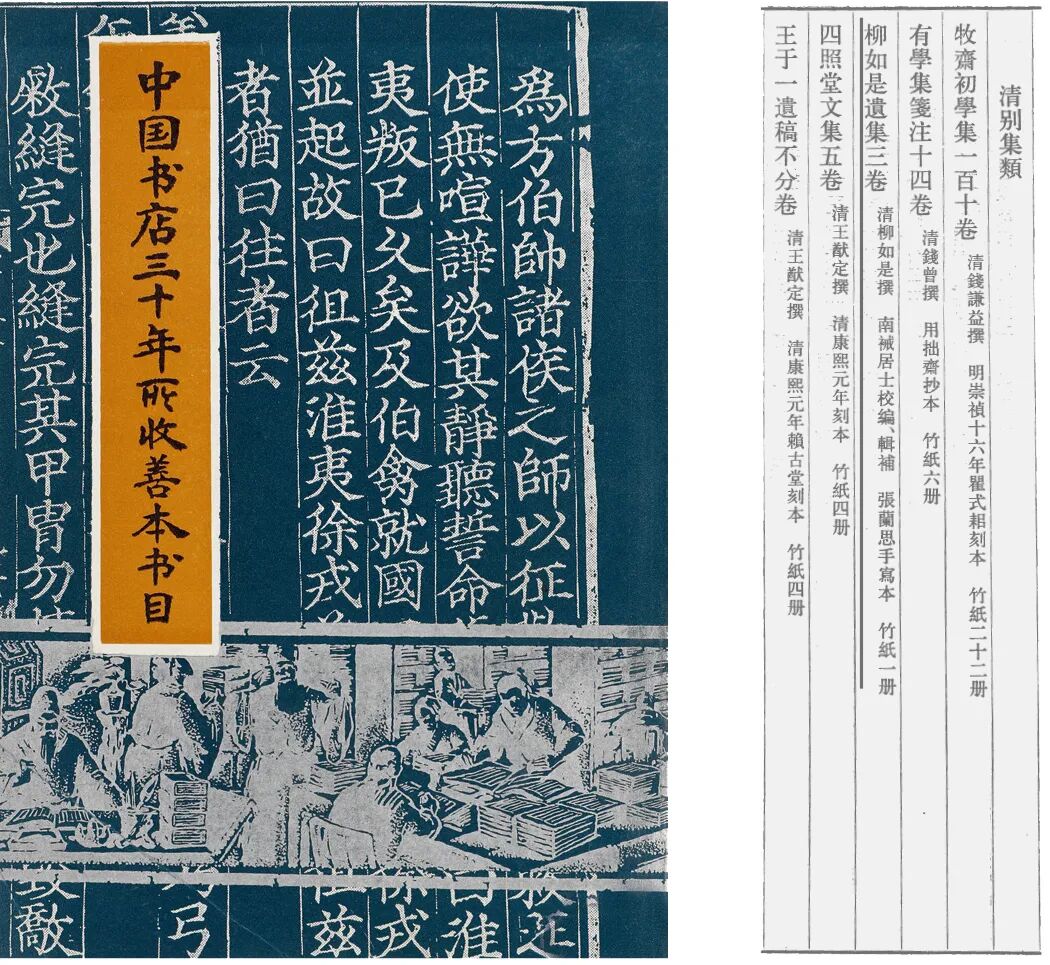 中国书店三十年所收善本书目
為方伯帥諸侯之師以征
使無喧譁欲其靜聽誓命
夷叛已久矣及伯禽就國
並起故曰徂兹淮夷徐戎
者猶曰往者云
敹縫完也縫完其甲冑勿
曰淮
徐戎
徂兹
弓
敿
清别集類
牧齋初學集一百十卷 清錢謙益撰 明崇禎十六年瞿式耜刻本 竹紙二十二册
有學集箋注十四卷 清錢曾撰 用拙齋抄本 竹紙六册
柳如是遺集三卷 清柳如是撰 南裓居士校編、輯補 張蘭思手寫本 竹紙一册
四照堂文集五卷 清王猷定撰 清康熙元年刻本 竹紙四册
王于一遺稿不分卷 清王猷定撰 清康熙元年賴古堂刻本 竹紙四册